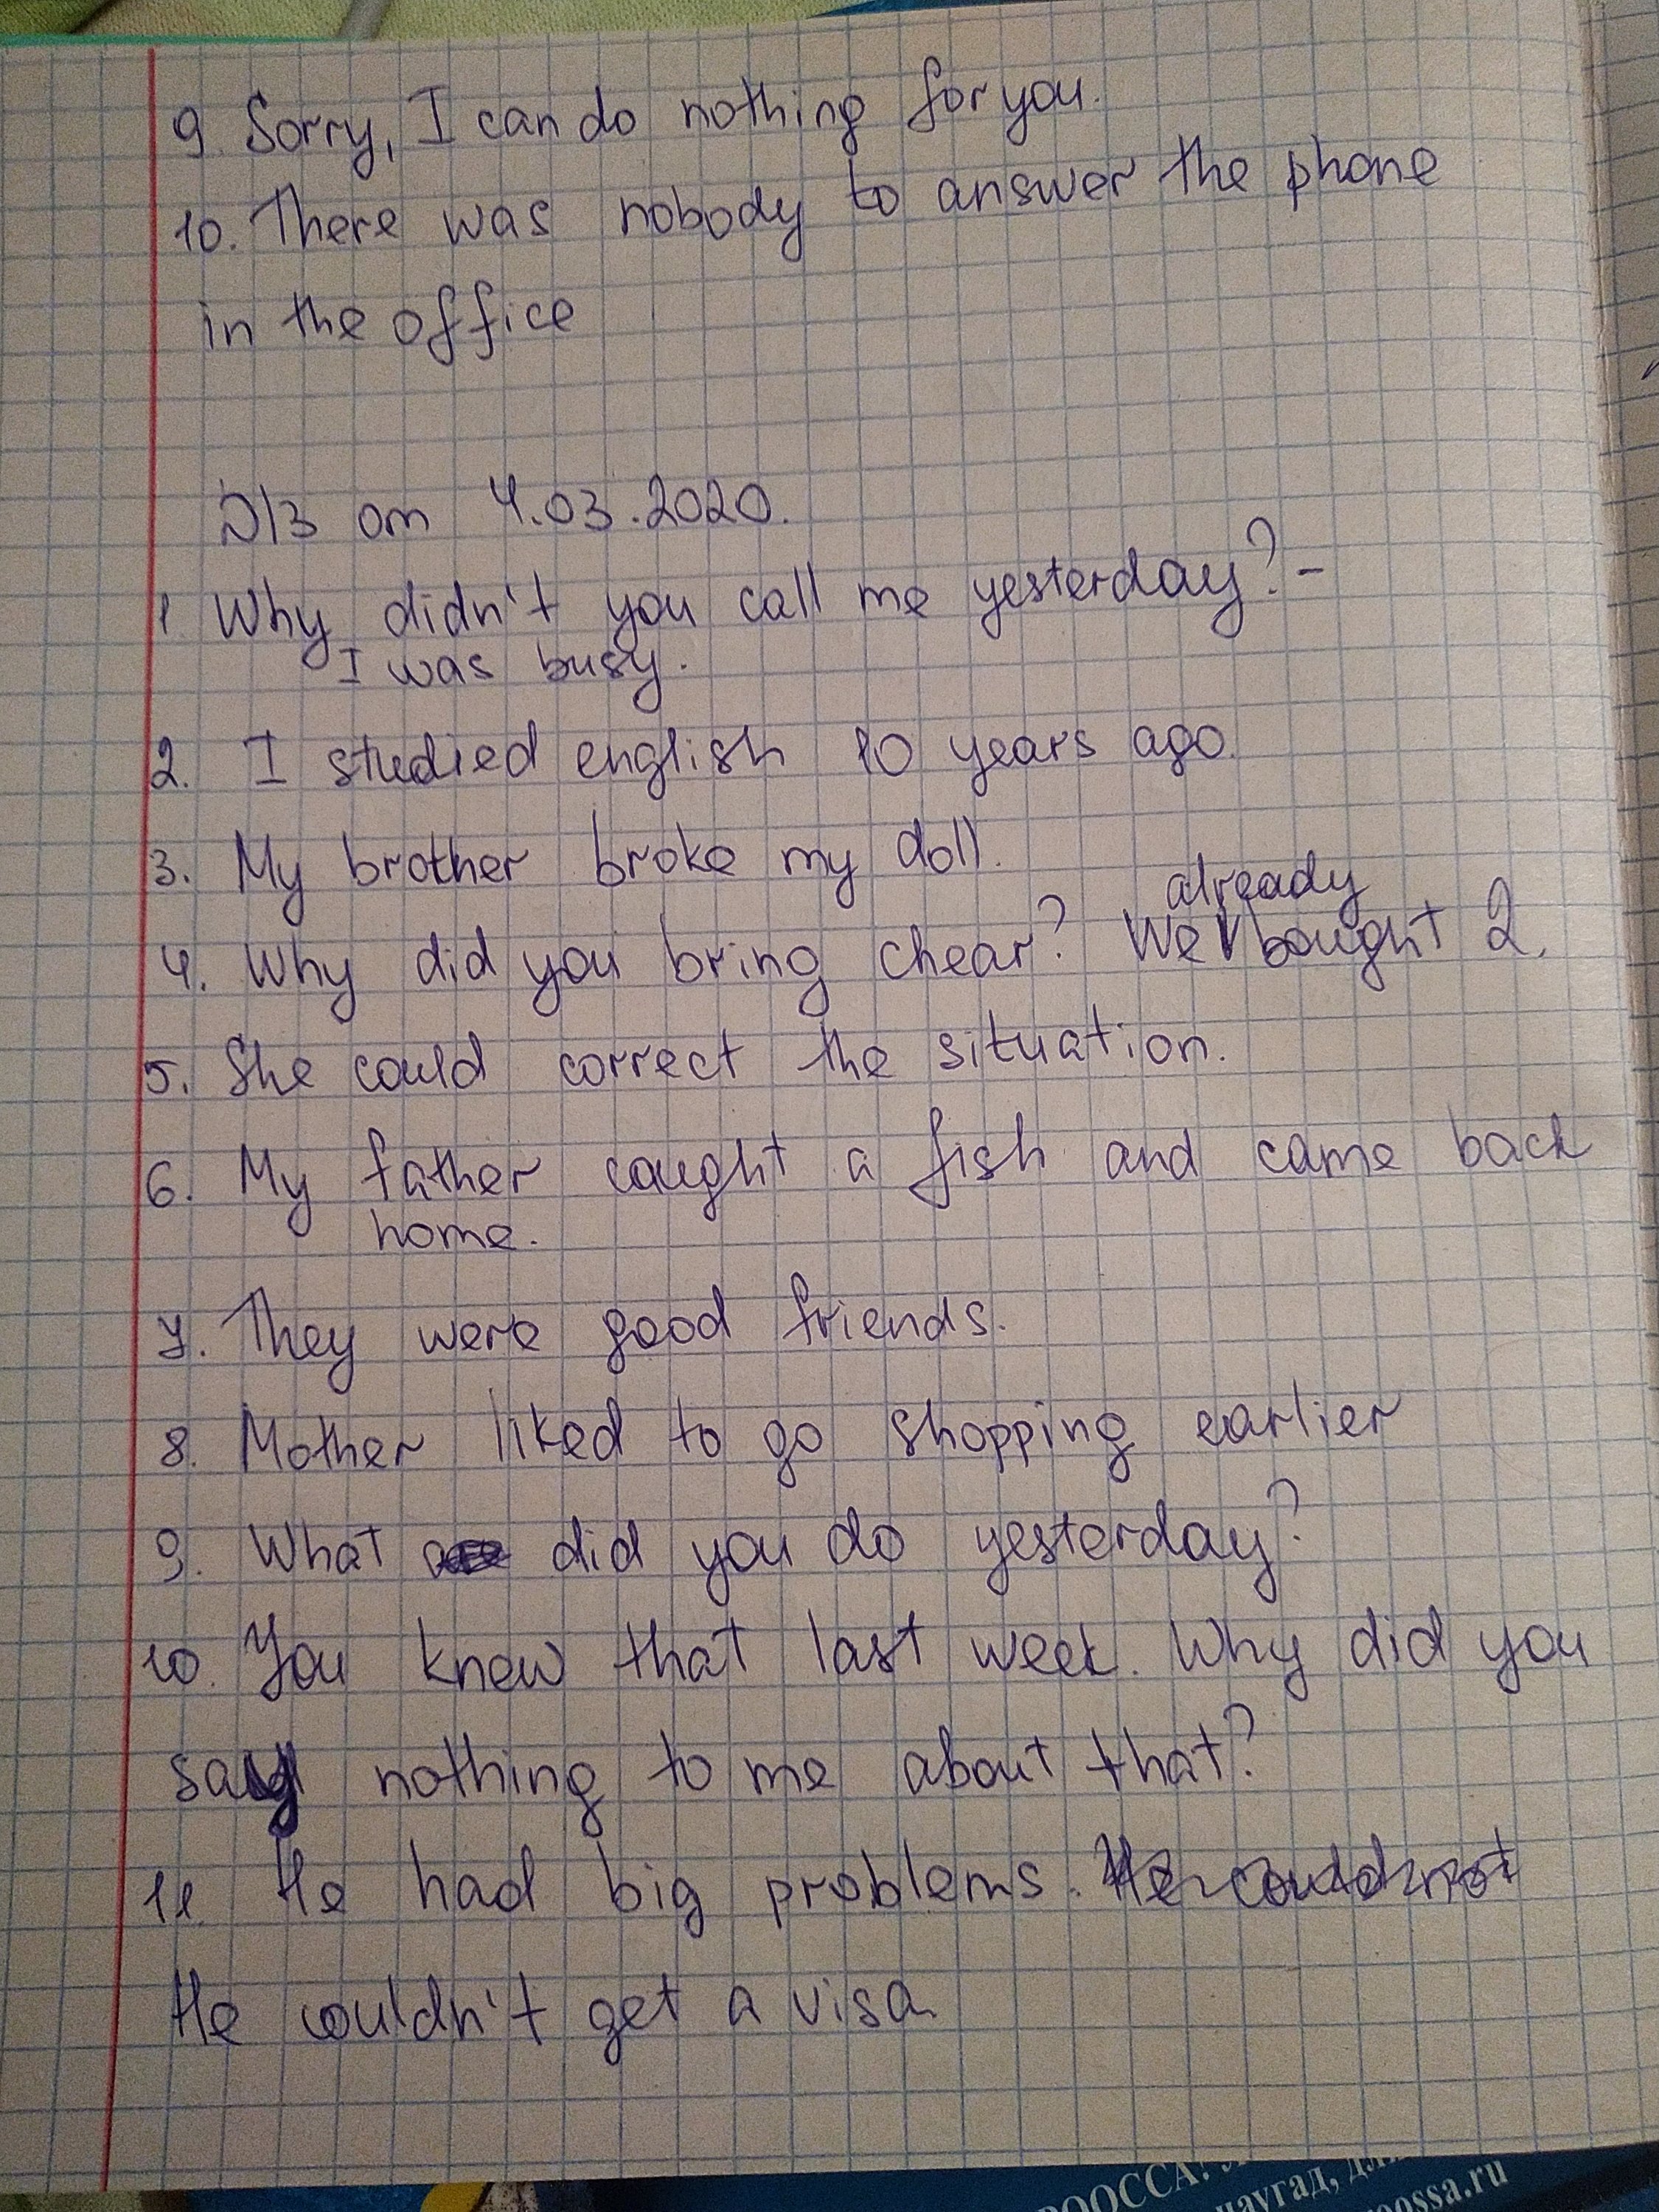 9. Sorry, I can do nothing for you.
10. There was nobody to answer the phone
in the office
Д/З от 4.03.2020.
1 Why didn't you call me yesterday? -
I was busy.
2. I studied english 10 years ago.
3. My brother broke my doll.
already
4. Why did you bring chear? We V bought 2.
5. She could correct the situation.
6. My father caught a fish and came back
home.
7. They were good friends.
8. Mother liked to go shopping earlier
9. What did you do yesterday?
10. You knew that last week. Why did you
say nothing to me about that?
11. He had big problems. He could not
He couldn't get a visa
РООССА
науград, дл
oossa.ru